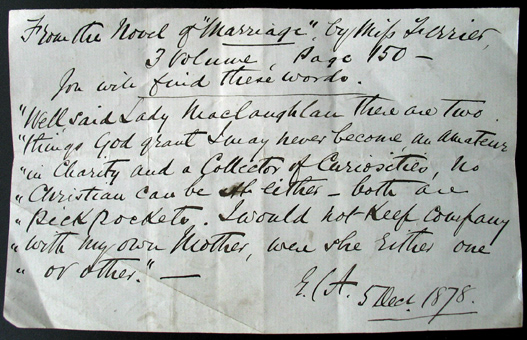 From the Novel of "Marriage", by Miss Ferrier,
3 Volume, Page 150 –
You will find these words.
"Well, said Lady Maclaughlan there are two
"things God grant I may never become, an amateur
"in Charity and a Collector of Curiosities, No
"Christian can be either – both are
"Pick Pockets. I would not Keep Company
"with my own Mother, were she Either one
"or other." —
5 Decr. 1878.